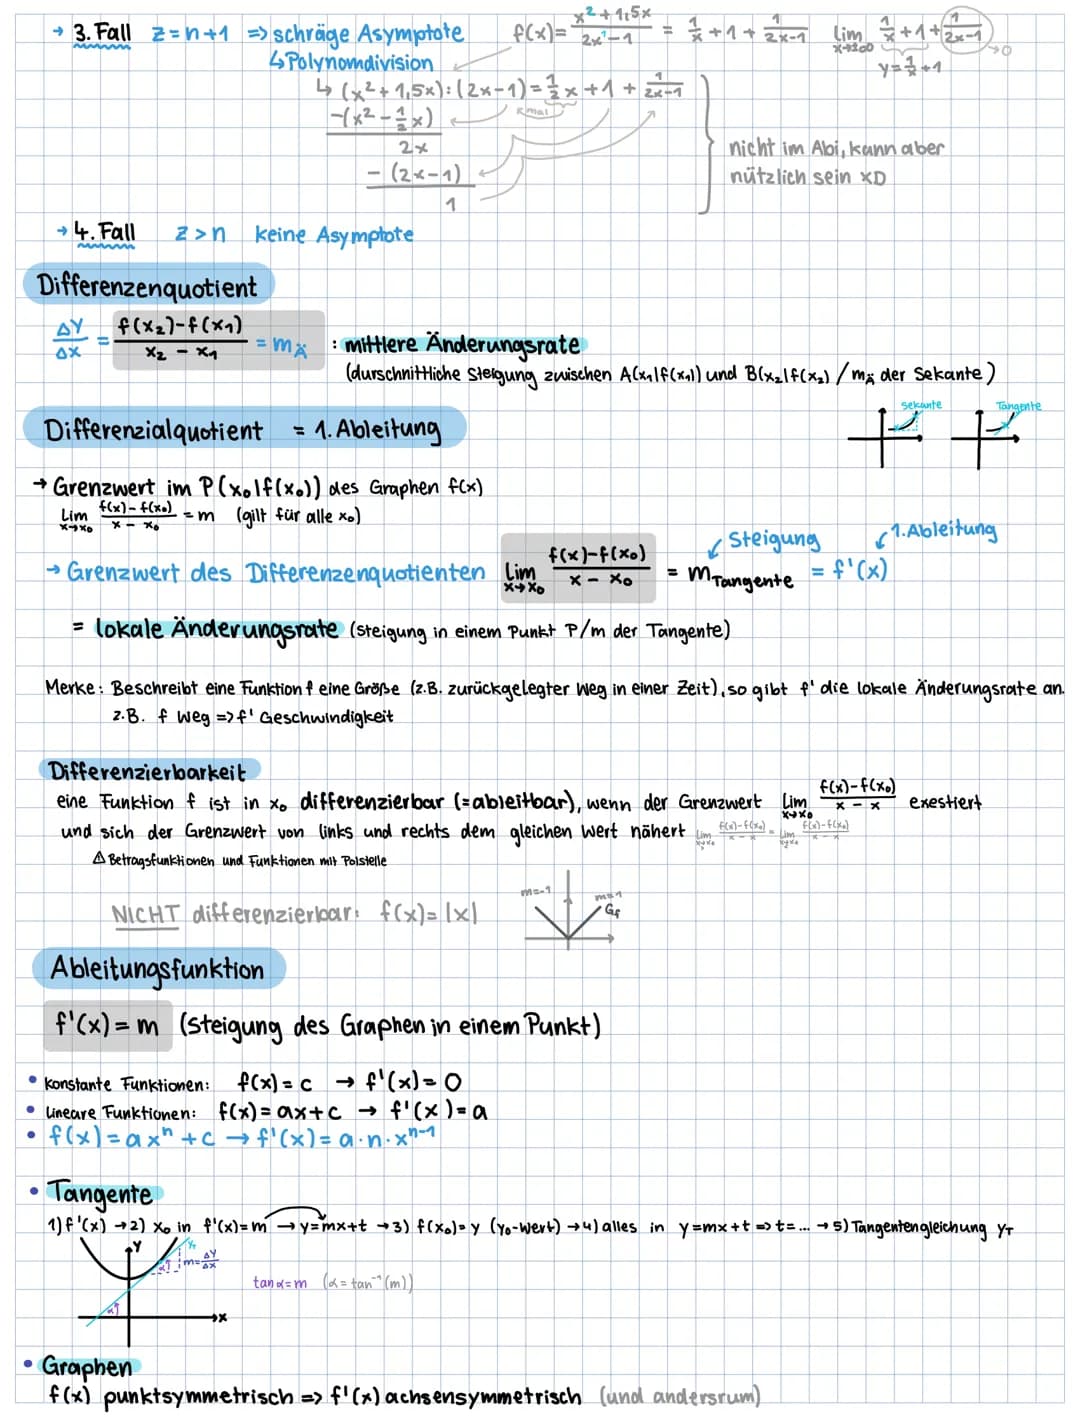 → 3. Fall z=n+1 => schräge Asymptote f(x)= (x²+1,5x)/(2x¹-1) = 1/x +1+ 1/(2x-1) Lim x→±∞ 1/x +1+ 1/(2x-1) →0
↳Polynomdivision y= 1/x +1
↳ (x²+1,5x):(2x-1)= 1/2 x +1 + 1/(2x-1)
-(x²-1/2 x) mal
2x
- (2x-1)
1
nicht im Abi, kann aber
nützlich sein xD
→ 4. Fall z>n keine Asymptote
Differenzenquotient
ΔY/ΔX = (f(x₂)-f(x₁))/(x₂ - x₁) = mÄ : mittlere Änderungsrate
(durschnittliche Steigung zwischen A(x₁|f(x₁)) und B(x₂|f(x₂) / mÄ der Sekante)
Sekante Tangente
Differenzialquotient = 1. Ableitung
→ Grenzwert im P(x₀|f(x₀)) des Graphen f(x)
Lim x→x₀ (f(x)-f(x₀))/(x - x₀) = m (gilt für alle x₀)
Steigung 1. Ableitung
→ Grenzwert des Differenzenquotienten Lim x→x₀ (f(x)-f(x₀))/(x - x₀) = mTangente = f'(x)
= lokale Änderungsrate (Steigung in einem Punkt P/m der Tangente)
Merke: Beschreibt eine Funktion f eine Größe (z.B. zurückgelegter Weg in einer Zeit), so gibt f' die lokale Änderungsrate an.
z.B. f Weg => f' Geschwindigkeit
Differenzierbarkeit
eine Funktion f ist in x₀ differenzierbar (=ableitbar), wenn der Grenzwert Lim x→x₀ (f(x)-f(x₀))/(x - x) exestiert
und sich der Grenzwert von links und rechts dem gleichen Wert nähert Lim (f(x)-f(x₀))/(x - x) = Lim (f(x)-f(x₀))/(x - x)
⚠ Betragsfunktionen und Funktionen mit Polstelle
m=-1 m=1
NICHT differenzierbar: f(x)= |x| Gf
Ableitungsfunktion
f'(x) = m (Steigung des Graphen in einem Punkt)
• Konstante Funktionen: f(x) = c → f'(x) = 0
• Lineare Funktionen: f(x) = ax+c → f'(x) = a
• f(x) = axⁿ +c → f'(x) = a·n·xⁿ⁻¹
• Tangente
1) f'(x) →2) x₀ in f'(x)=m →y=mx+t →3) f(x₀)=y (y₀-Wert) →4) alles in y=mx+t => t=... →5) Tangentengleichung yT
Y yT
α m= ΔY/ΔX
tan α = m (α = tan⁻¹(m))
α
x
• Graphen
f(x) punktsymmetrisch => f'(x) achsensymmetrisch (und andersrum)